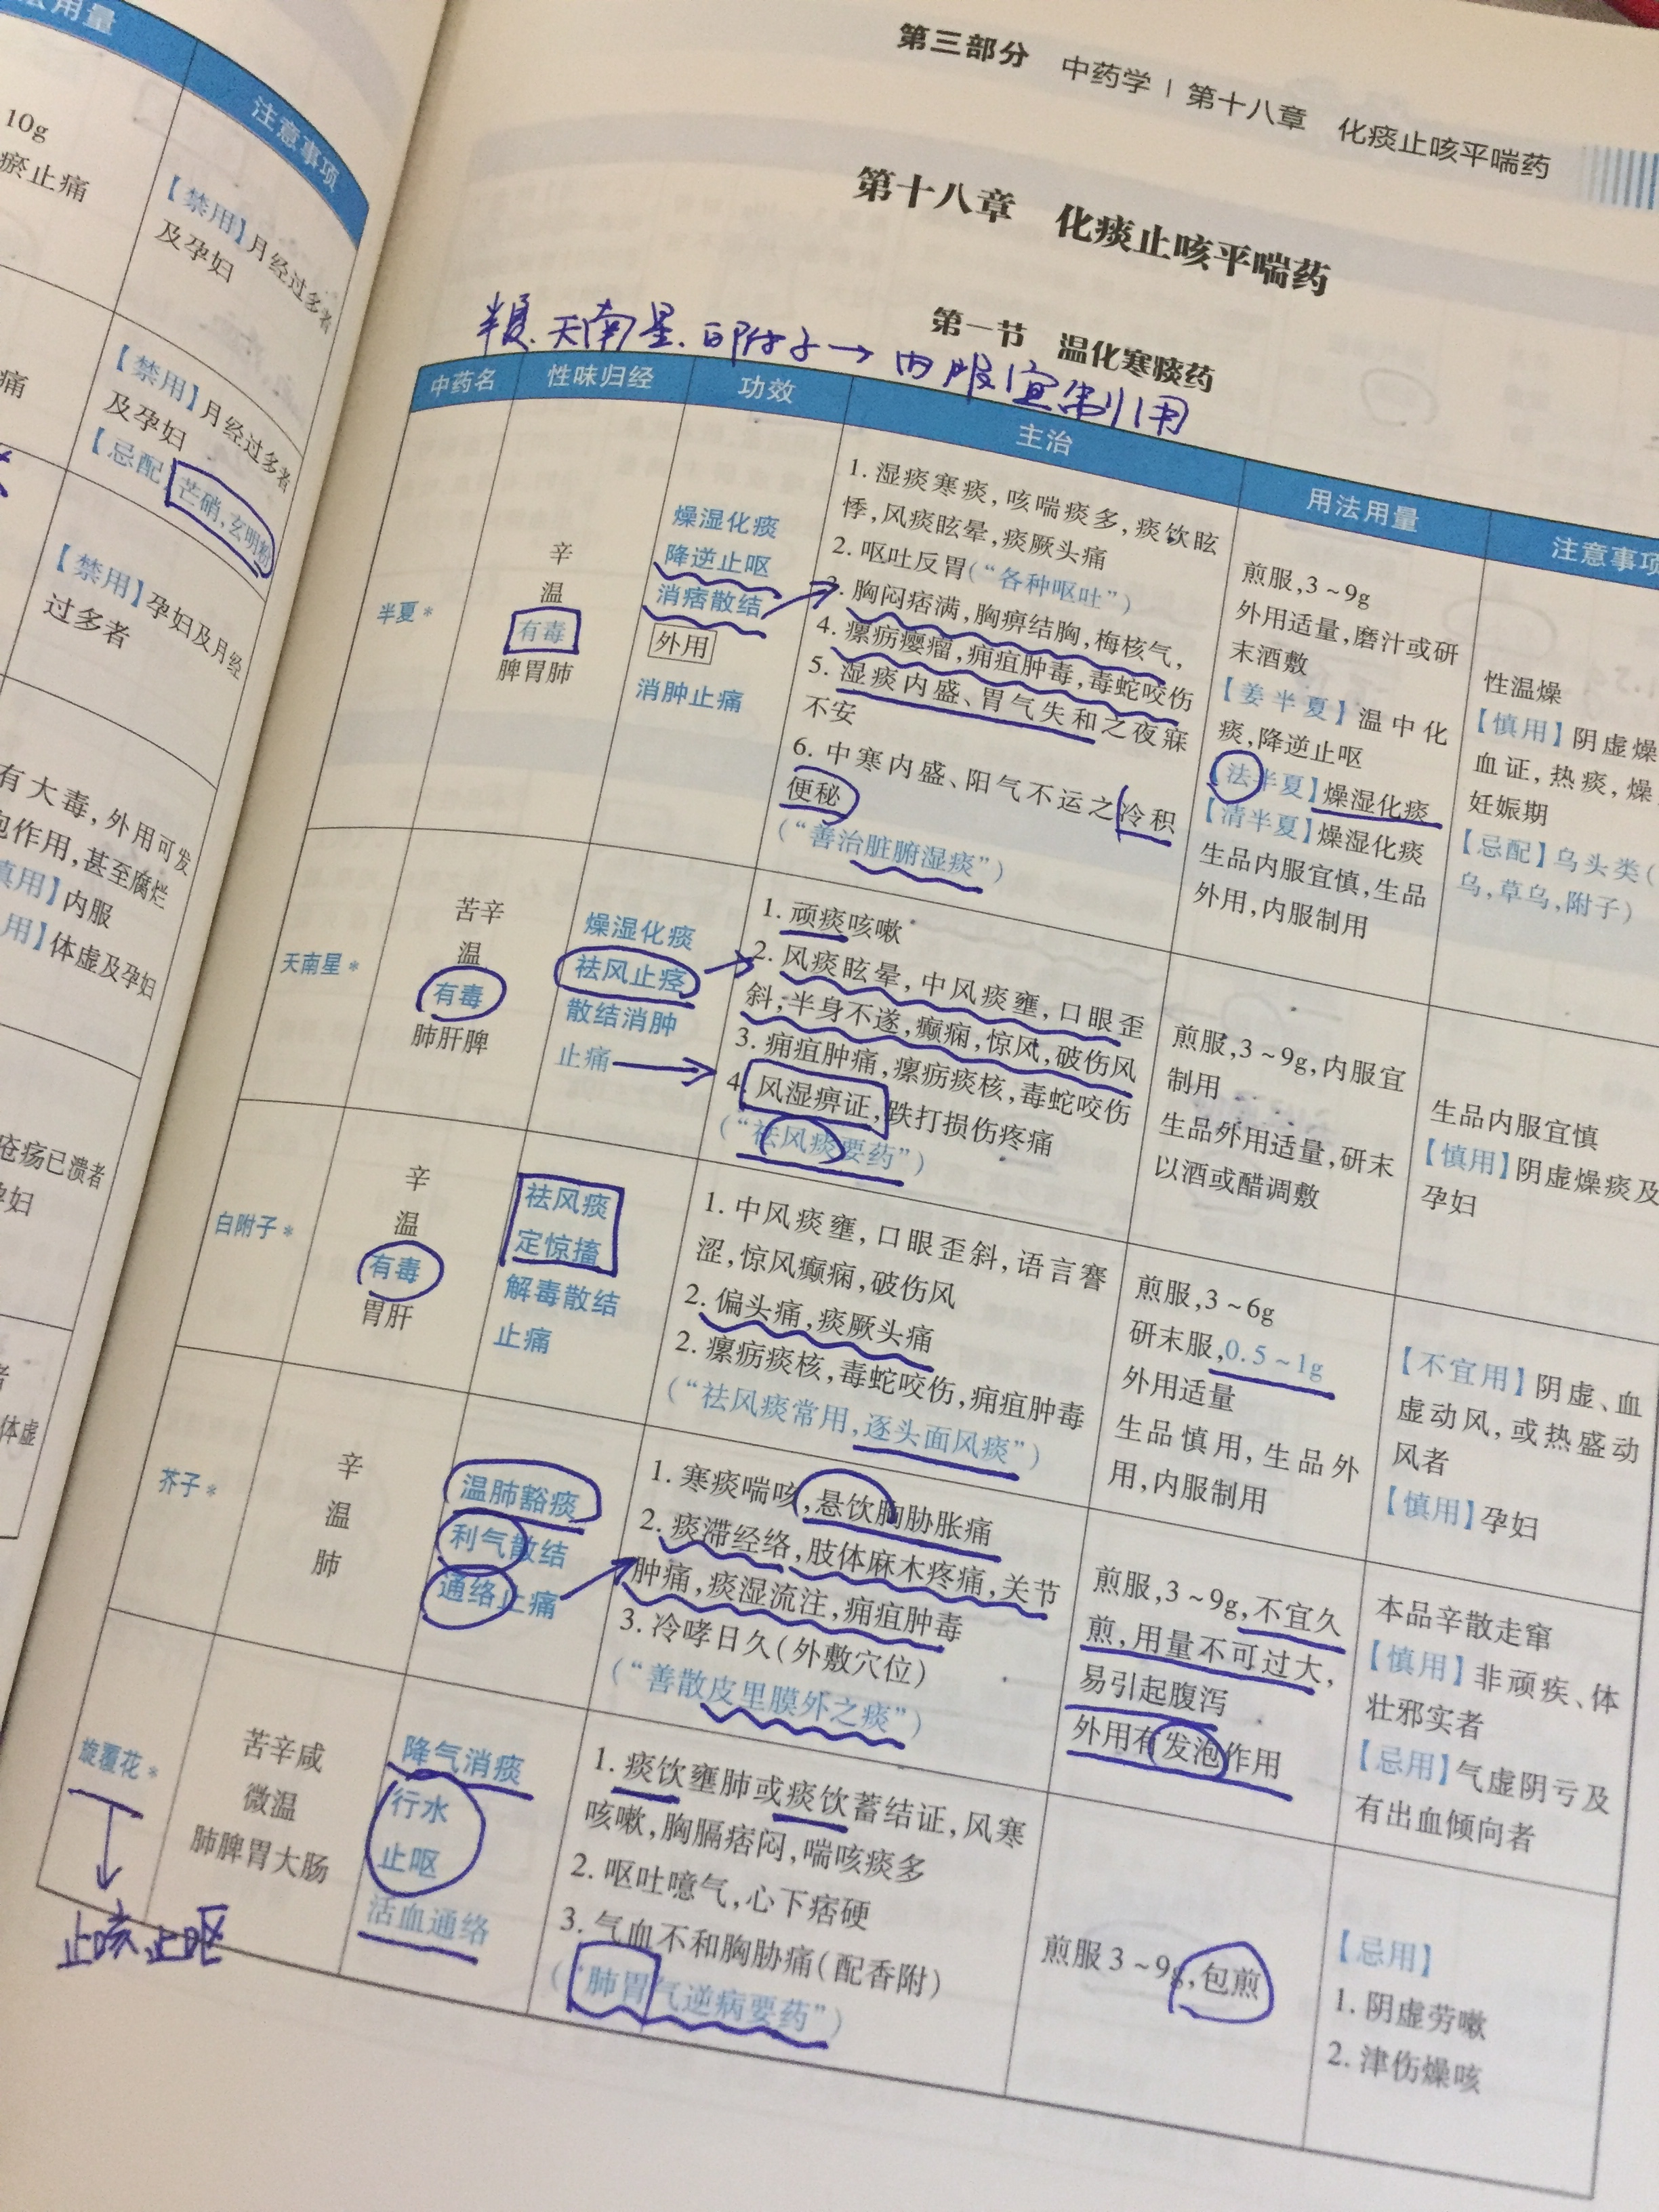 法用量
注意事项
10g
瘀止痛
【禁用】月经过多者
及孕妇
痛
【禁用】月经过多者
及孕妇
【忌配】芒硝,玄明粉
【禁用】孕妇及月经
过多者
有大毒,外用可发
泡作用,甚至腐烂
【慎用】内服
用】体虚及孕妇
疮疡已溃者
孕妇
者
体虚
第三部分 中药学 | 第十八章 化痰止咳平喘药
第十八章 化痰止咳平喘药
第一节 温化寒痰药
半夏.天南星.白附子→内服宜制用
中药名 性味归经 功效 主治 用法用量 注意事项
半夏*
辛
温
有毒
脾胃肺
燥湿化痰
降逆止呕
消痞散结
外用
消肿止痛
1. 湿痰寒痰,咳喘痰多,痰饮眩
悸,风痰眩晕,痰厥头痛
2. 呕吐反胃(“各种呕吐”)
3. 胸闷痞满,胸痹结胸,梅核气,
4. 瘰疬瘿瘤,痈疽肿毒,毒蛇咬伤
5. 湿痰内盛、胃气失和之夜寐
不安
6. 中寒内盛、阳气不运之冷积
便秘
(“善治脏腑湿痰”)
煎服,3~9g
外用适量,磨汁或研
末酒敷
【姜半夏】温中化
痰,降逆止呕
【法半夏】燥湿化痰
【清半夏】燥湿化痰
生品内服宜慎,生品
外用,内服制用
性温燥
【慎用】阴虚燥
血证,热痰,燥
妊娠期
【忌配】乌头类(
乌,草乌,附子)
天南星*
苦辛
温
有毒
肺肝脾
燥湿化痰
祛风止痉
散结消肿
止痛
1. 顽痰咳嗽
2. 风痰眩晕,中风痰壅,口眼歪
斜,半身不遂,癫痫,惊风,破伤风
3. 痈疽肿痛,瘰疬痰核,毒蛇咬伤
4. 风湿痹证,跌打损伤疼痛
(“祛风痰要药”)
煎服,3~9g,内服宜
制用
生品外用适量,研末
以酒或醋调敷
生品内服宜慎
【慎用】阴虚燥痰及
孕妇
白附子*
辛
温
有毒
胃肝
祛风痰
定惊搐
解毒散结
止痛
1. 中风痰壅,口眼歪斜,语言謇
涩,惊风癫痫,破伤风
2. 偏头痛,痰厥头痛
2. 瘰疬痰核,毒蛇咬伤,痈疽肿毒
(“祛风痰常用,逐头面风痰”)
煎服,3~6g
研末服,0.5~1g
外用适量
生品慎用,生品外
用,内服制用
【不宜用】阴虚、血
虚动风,或热盛动
风者
【慎用】孕妇
芥子*
辛
温
肺
温肺豁痰
利气散结
通络止痛
1. 寒痰喘咳,悬饮胸胁胀痛
2. 痰滞经络,肢体麻木疼痛,关节
肿痛,痰湿流注,痈疽肿毒
3. 冷哮日久(外敷穴位)
(“善散皮里膜外之痰”)
煎服,3~9g,不宜久
煎,用量不可过大,
易引起腹泻
外用有发泡作用
本品辛散走窜
【慎用】非顽疾、体
壮邪实者
【忌用】气虚阴亏及
有出血倾向者
旋覆花*
苦辛咸
微温
肺脾胃大肠
降气消痰
行水
止呕
活血通络
1. 痰饮壅肺或痰饮蓄结证,风寒
咳嗽,胸膈痞闷,喘咳痰多
2. 呕吐噫气,心下痞硬
3. 气血不和胸胁痛(配香附)
(“肺胃气逆病要药”)
煎服3~9g,包煎
【忌用】
1. 阴虚劳嗽
2. 津伤燥咳
止咳.止呕